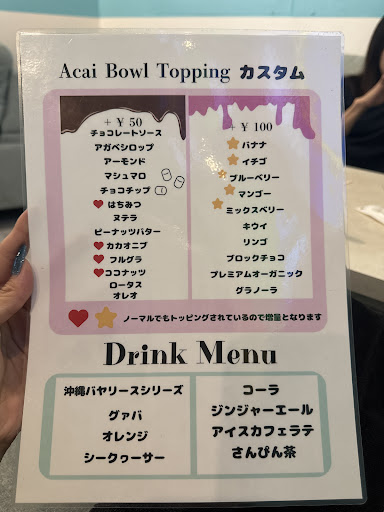 Acai Bowl Topping カスタム
+ ¥ 50
チョコレートソース
アガベシロップ
アーモンド
マシュマロ
チョコチップ
はちみつ
ヌテラ
ピーナッツバター
カカオニブ
フルグラ
ココナッツ
ロータス
オレオ
+ ¥ 100
バナナ
イチゴ
ブルーベリー
マンゴー
ミックスベリー
キウイ
リンゴ
ブロックチョコ
プレミアムオーガニック
グラノーラ
ノーマルでもトッピングされているので増量となります
Drink Menu
沖縄バヤリースシリーズ
グァバ
オレンジ
シークヮーサー
コーラ
ジンジャーエール
アイスカフェラテ
さんぴん茶